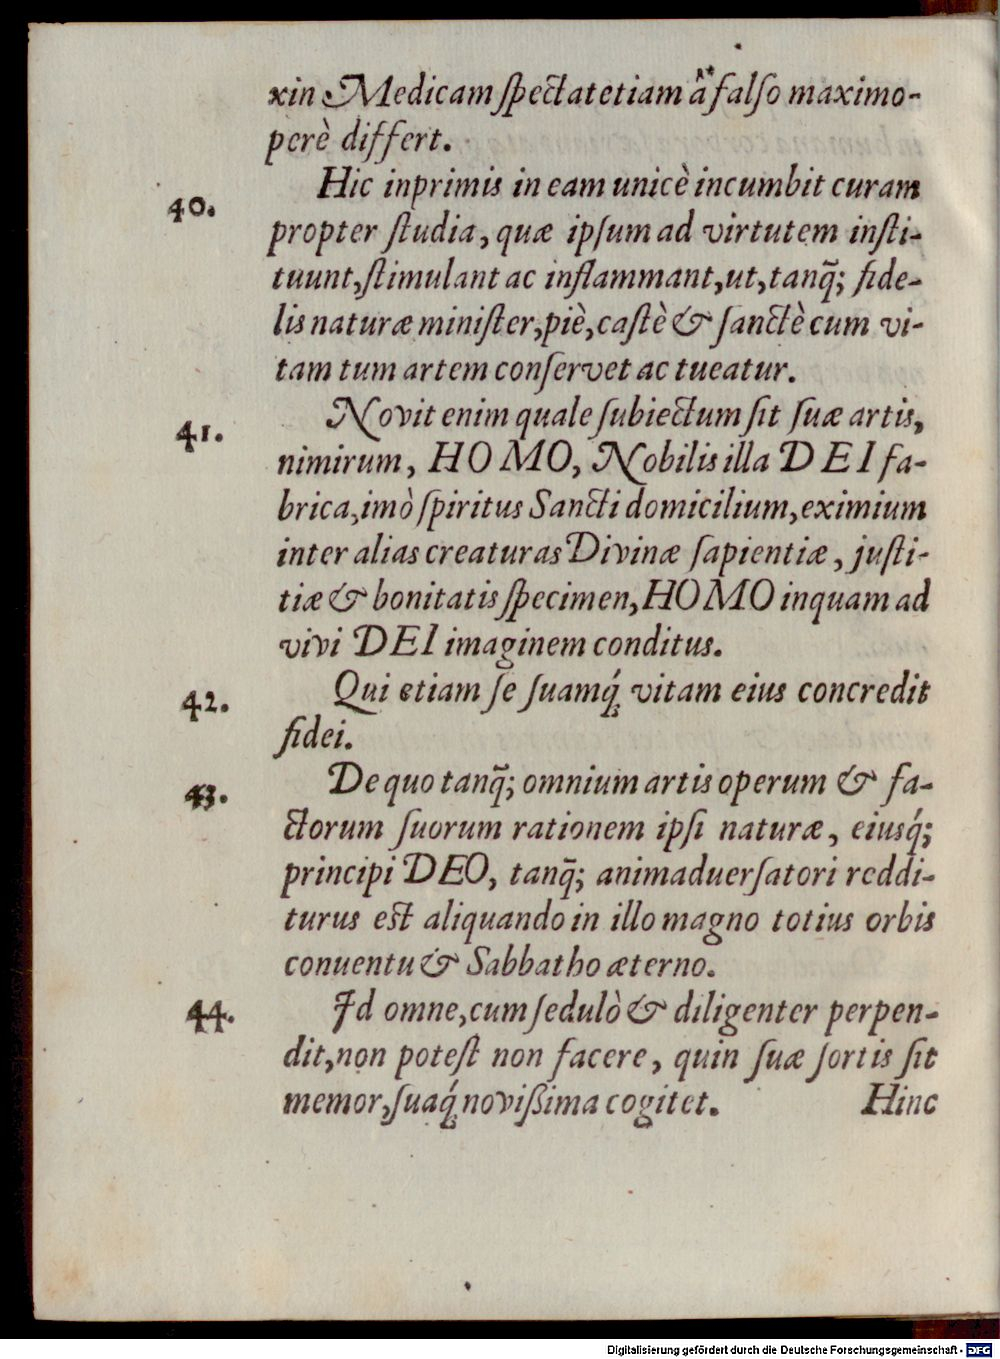 xin Medicam ſpectat etiam â falſo maximo-
perè differt.
40. Hic inprimis in eam unicè incumbit curam
propter ſtudia, quæ ipſum ad virtutem inſti-
tuunt, ſtimulant ac inflammant, ut, tanq̃; fide-
lis naturæ miniſter, piè, caſtè & ſanctè cum vi-
tam tum artem conſervet ac tueatur.
41. Novit enim quale ſubiectum ſit ſuæ artis,
nimirum, HOMO, Nobilis illa DEI fa-
brica, imò ſpiritus Sancti domicilium, eximium
inter alias creaturas Divinæ ſapientiæ, juſti-
tiæ & bonitatis ſpecimen, HOMO inquam ad
vivi DEI imaginem conditus.
42. Qui etiam ſe ſuamq́; vitam eius concredit
fidei.
43. De quo tanq̃; omnium artis operum & fa-
ctorum ſuorum rationem ipſi naturæ, eiusq́;
principi DEO, tanq̃; animaduerſatori reddi-
turus eſt aliquando in illo magno totius orbis
conuentu & Sabbatho æterno.
44. Id omne, cum ſedulò & diligenter perpen-
dit, non poteſt non facere, quin ſuæ ſortis ſit
memor, ſuaq́; noviſsima cogitet. Hinc
Digitalisierung gefördert durch die Deutsche Forschungsgemeinschaft - DFG